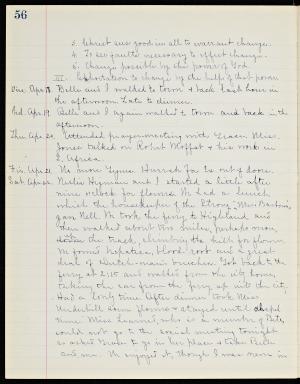 56
3. Christ sees good in all to warrant change.
4. To see faults necessary to effect change.
5. Change possible by the power of God.
III. Exhortation to change by the help of that power
Tue. Apr. 18. Belle and I walked to town & back last hour in
the afternoon. Late to dinner.
Wed. Apr. 19. Belle and I again walked to town and back in the
afternoon.
Thu. Apr. 20. Attended prayer-meeting with Grace. Miss
Jones talked on Robert Moffat & his work in
S. Africa.
Fri. Apr. 21. No more Gym. Hurrah for to out of doors.
Sat. Apr. 22. Nellie Hyman and I started a little after
nine o'clock for flowers. We had a lunch
which the housekeeper of the Strong,
gave Nell. We took the ferry to Highland and
then walked about two miles, perhaps more,
the track, climbing the hills for flowers.
We found hepatica, blood root and a great
deal of Dutchman's breeches. Got back to the
ferry at 2:15 and walked from the city home,
taking the car from the ferry up into the city.
Had a long time. After dinner took Miss
Underhill some flowers & stayed until
nine. Miss Learned, who is a member of
could not go to the social meeting tonight
so asked Grace to go in her place & take Belle
and me. We enjoyed it, though I was more in